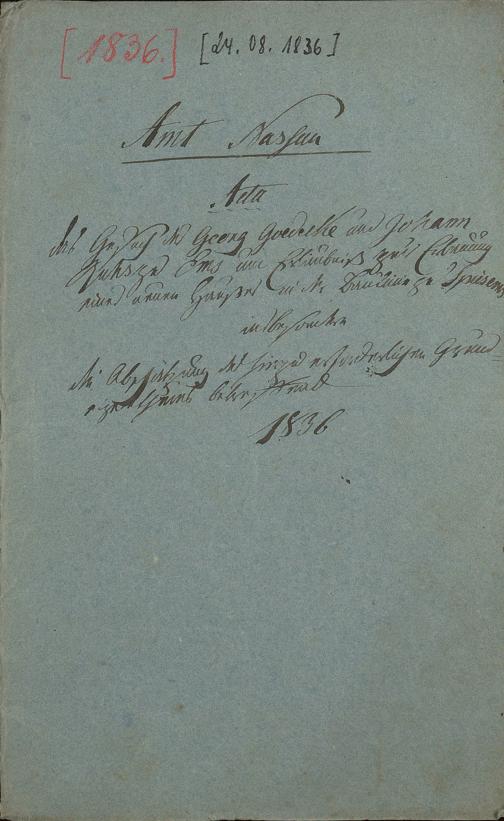 [1836.] [24. 08. 1836]
Amt Nassau
Acta
das Gesuch des Georg Goedecke und Johann
zu Ems um Erlaubniß zur Erbauung
eines neuen Hauses in der Baulinie zu
insbesondere
die Abschätzung des hierzu erforderlichen Grund-
eigenthums betreffend
1836